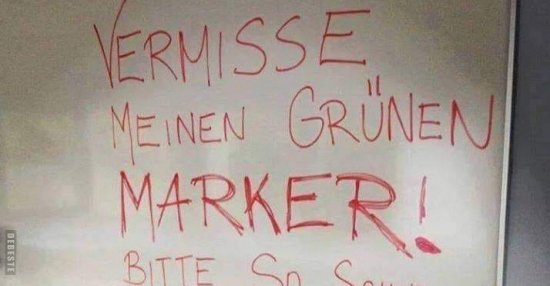 VERMISSE
MEINEN GRÜNEN
MARKER!
BITTE SO
DEBESTE